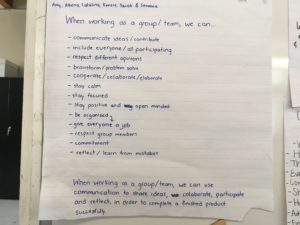 Amy, Athena, Catalina, Kenzie, Sarah & Samara
When working as a group/team, we can...
- communicate ideas / contribute
- include everyone / all participating
- respect different opinions
- brainstorm / problem solve
- cooperate / collaborate / elaborate
- stay calm
- stay focused
- stay positive and open minded
- be organised
- give everyone a job
- respect group members
- commitment
- reflect / learn from mistakes
When working as a group/team, we can use
communication to share ideas, collaborate, participate
and reflect, in order to complete a finished product
successfully.